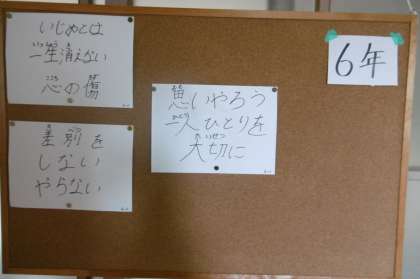 いじめとは
一生消えない
心の傷
差別を
しない
やらない
思いやろう
一人ひとりを
大切に
6年